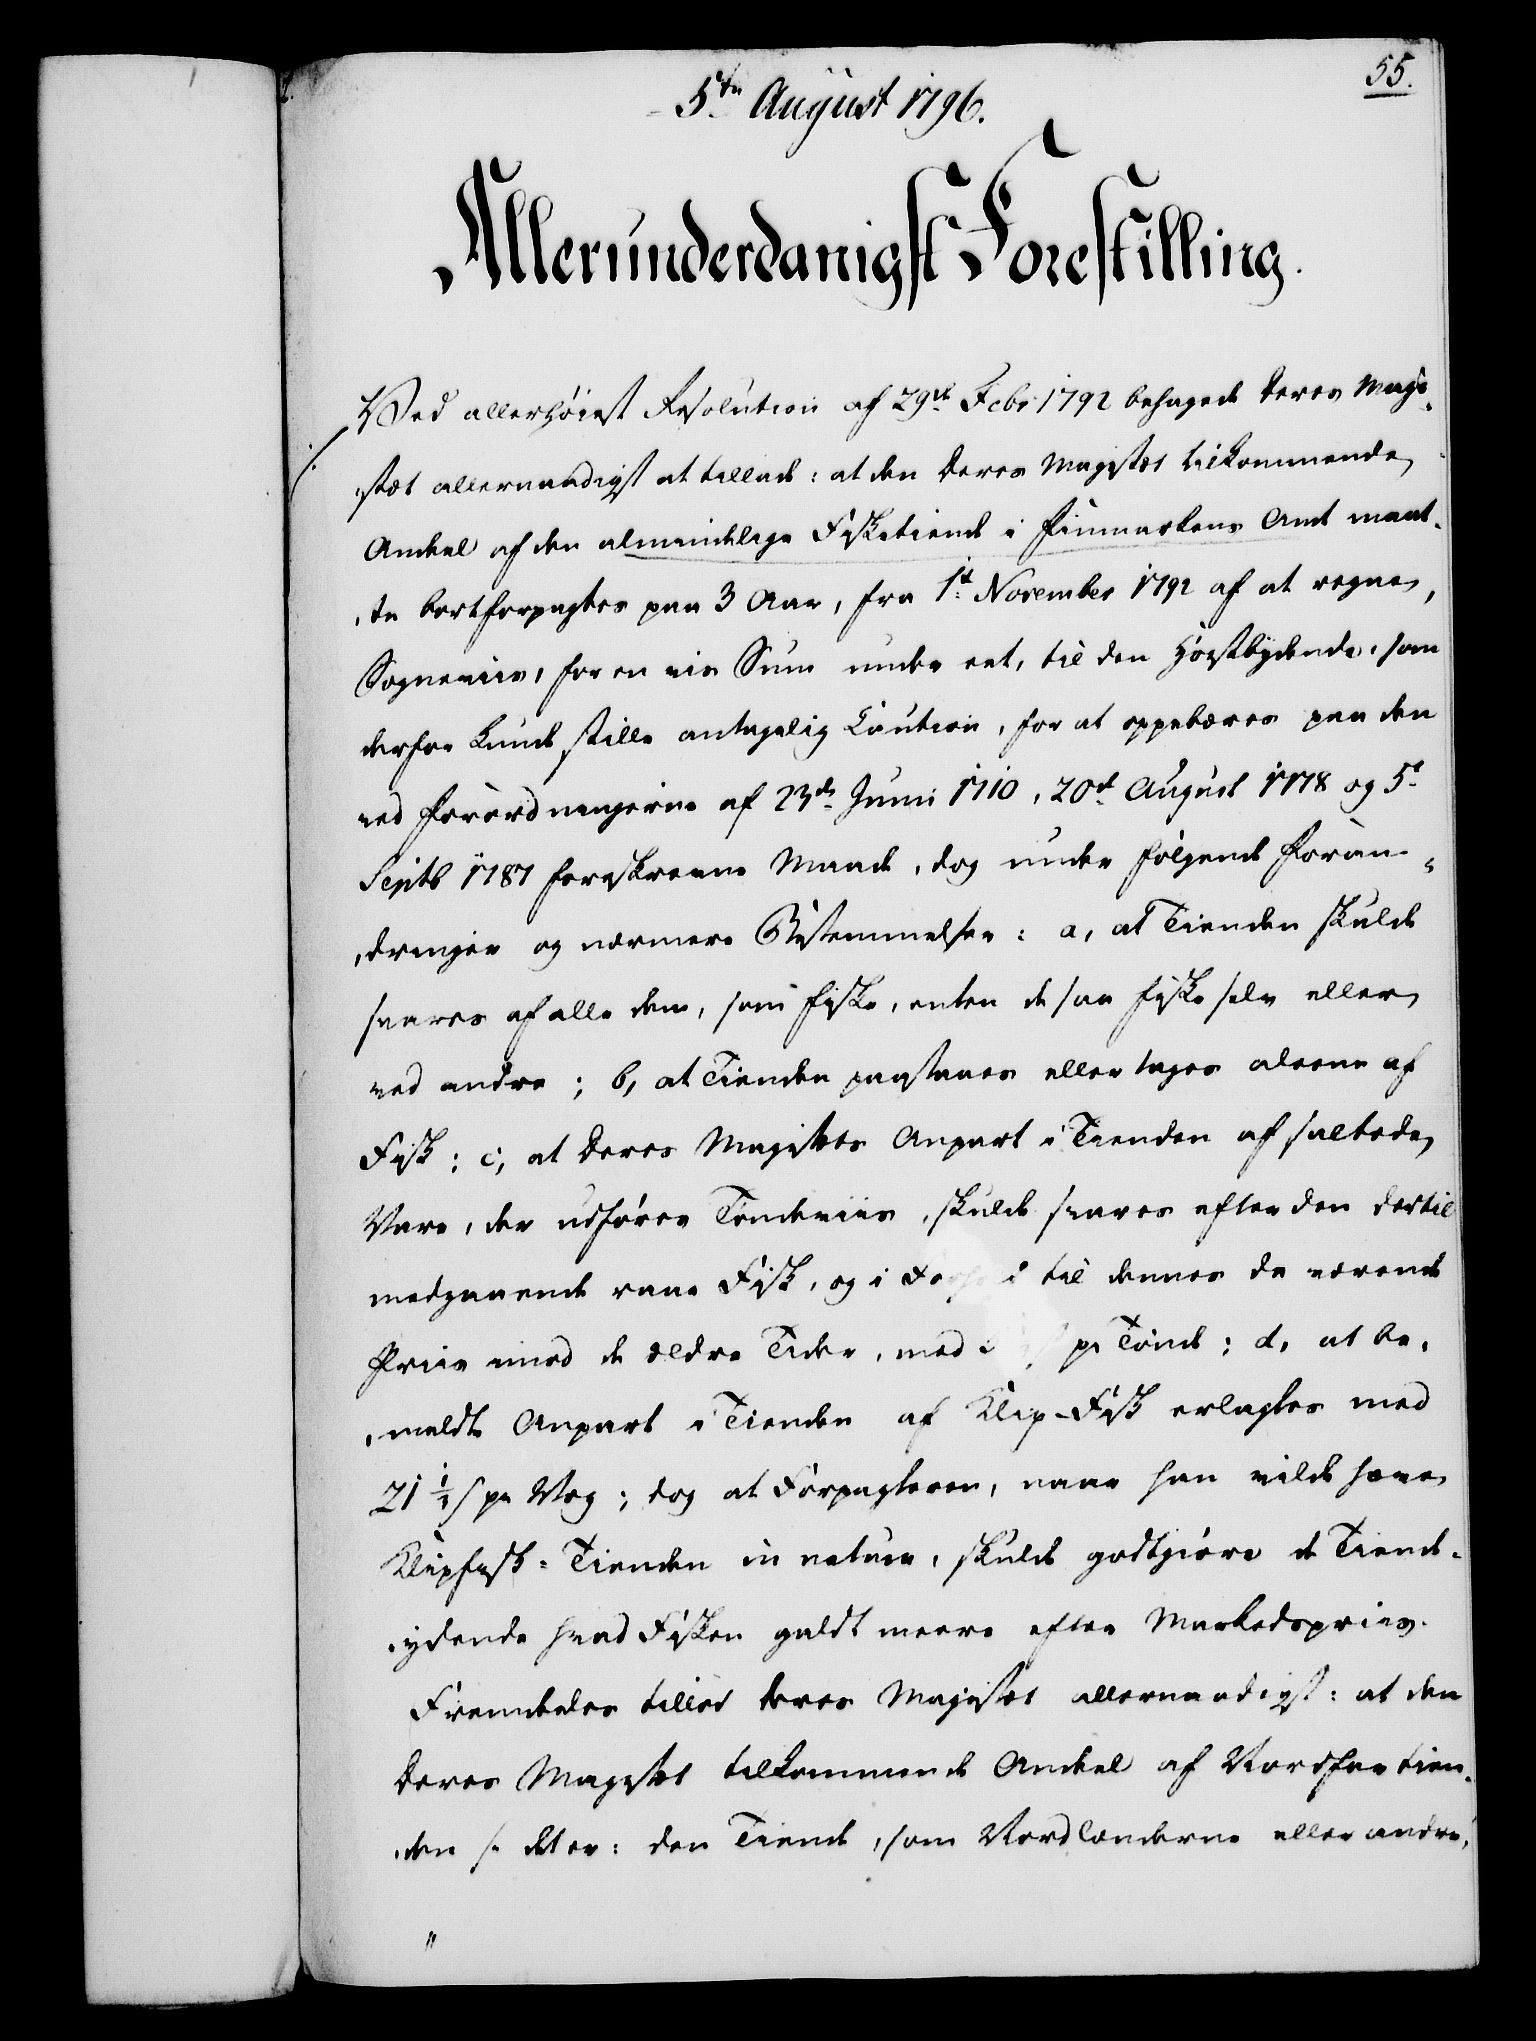 55.
5te August 1796.
Allerunderdanigst Forestilling.
Ved allerhøiest Resolution af 29de Febr 1792 behagede Deres Maje-
stæt allernaadigst at tillade: at den Deres Majestæt tilkommende
Andeel af den almindelige Fisketiende i Finmarkens Amt maat-
te bortforpagtes paa 3 Aar, fra 1te November 1792 af at regne,
Sogneviis, for en vis Sum under eet, til den Høistbydende, som
derfor kunde stille antagelig Caution, for at oppebæres paa den
ved Forordningerne af 23de Junii 1710, 20de August 1778 og 5te
Septb 1787 foreskrevne Maade, dog under følgende Foran-
dringer og nærmere Bestemmelser: a, at Tienden skulde
svares af alle dem, som fiske, enten de saa fiske selv eller
ved andre; b, at Tienden paastaaes eller tages aleene af
Fisk; c, at Deres Majestets Anpart i Tienden af saltede
Vare, der udføres Tøndeviis, skulde svares efter den dertil
medgaaende raae Fisk, og i til dennes da værende
Priis imod de ældre Tider, med pr Tønde; d, at be-
meldte Anpart i Tienden af Klip-Fisk erlagtes med
21 ½ s pr Vog; dog at Forpagteren, naar han vilde have
Klipfisk-Tienden in natura, skulde godtgiøre de Tiende-
ydende hvad Fisken galdt meere efter Markedspriis.
Fremdeles tillod Deres Majestet allernaadigst: at den
Deres Majestet tilkommende Andeel af Nordfartien-
den s. det er: den Tiende, som Nordlænderne eller andre,